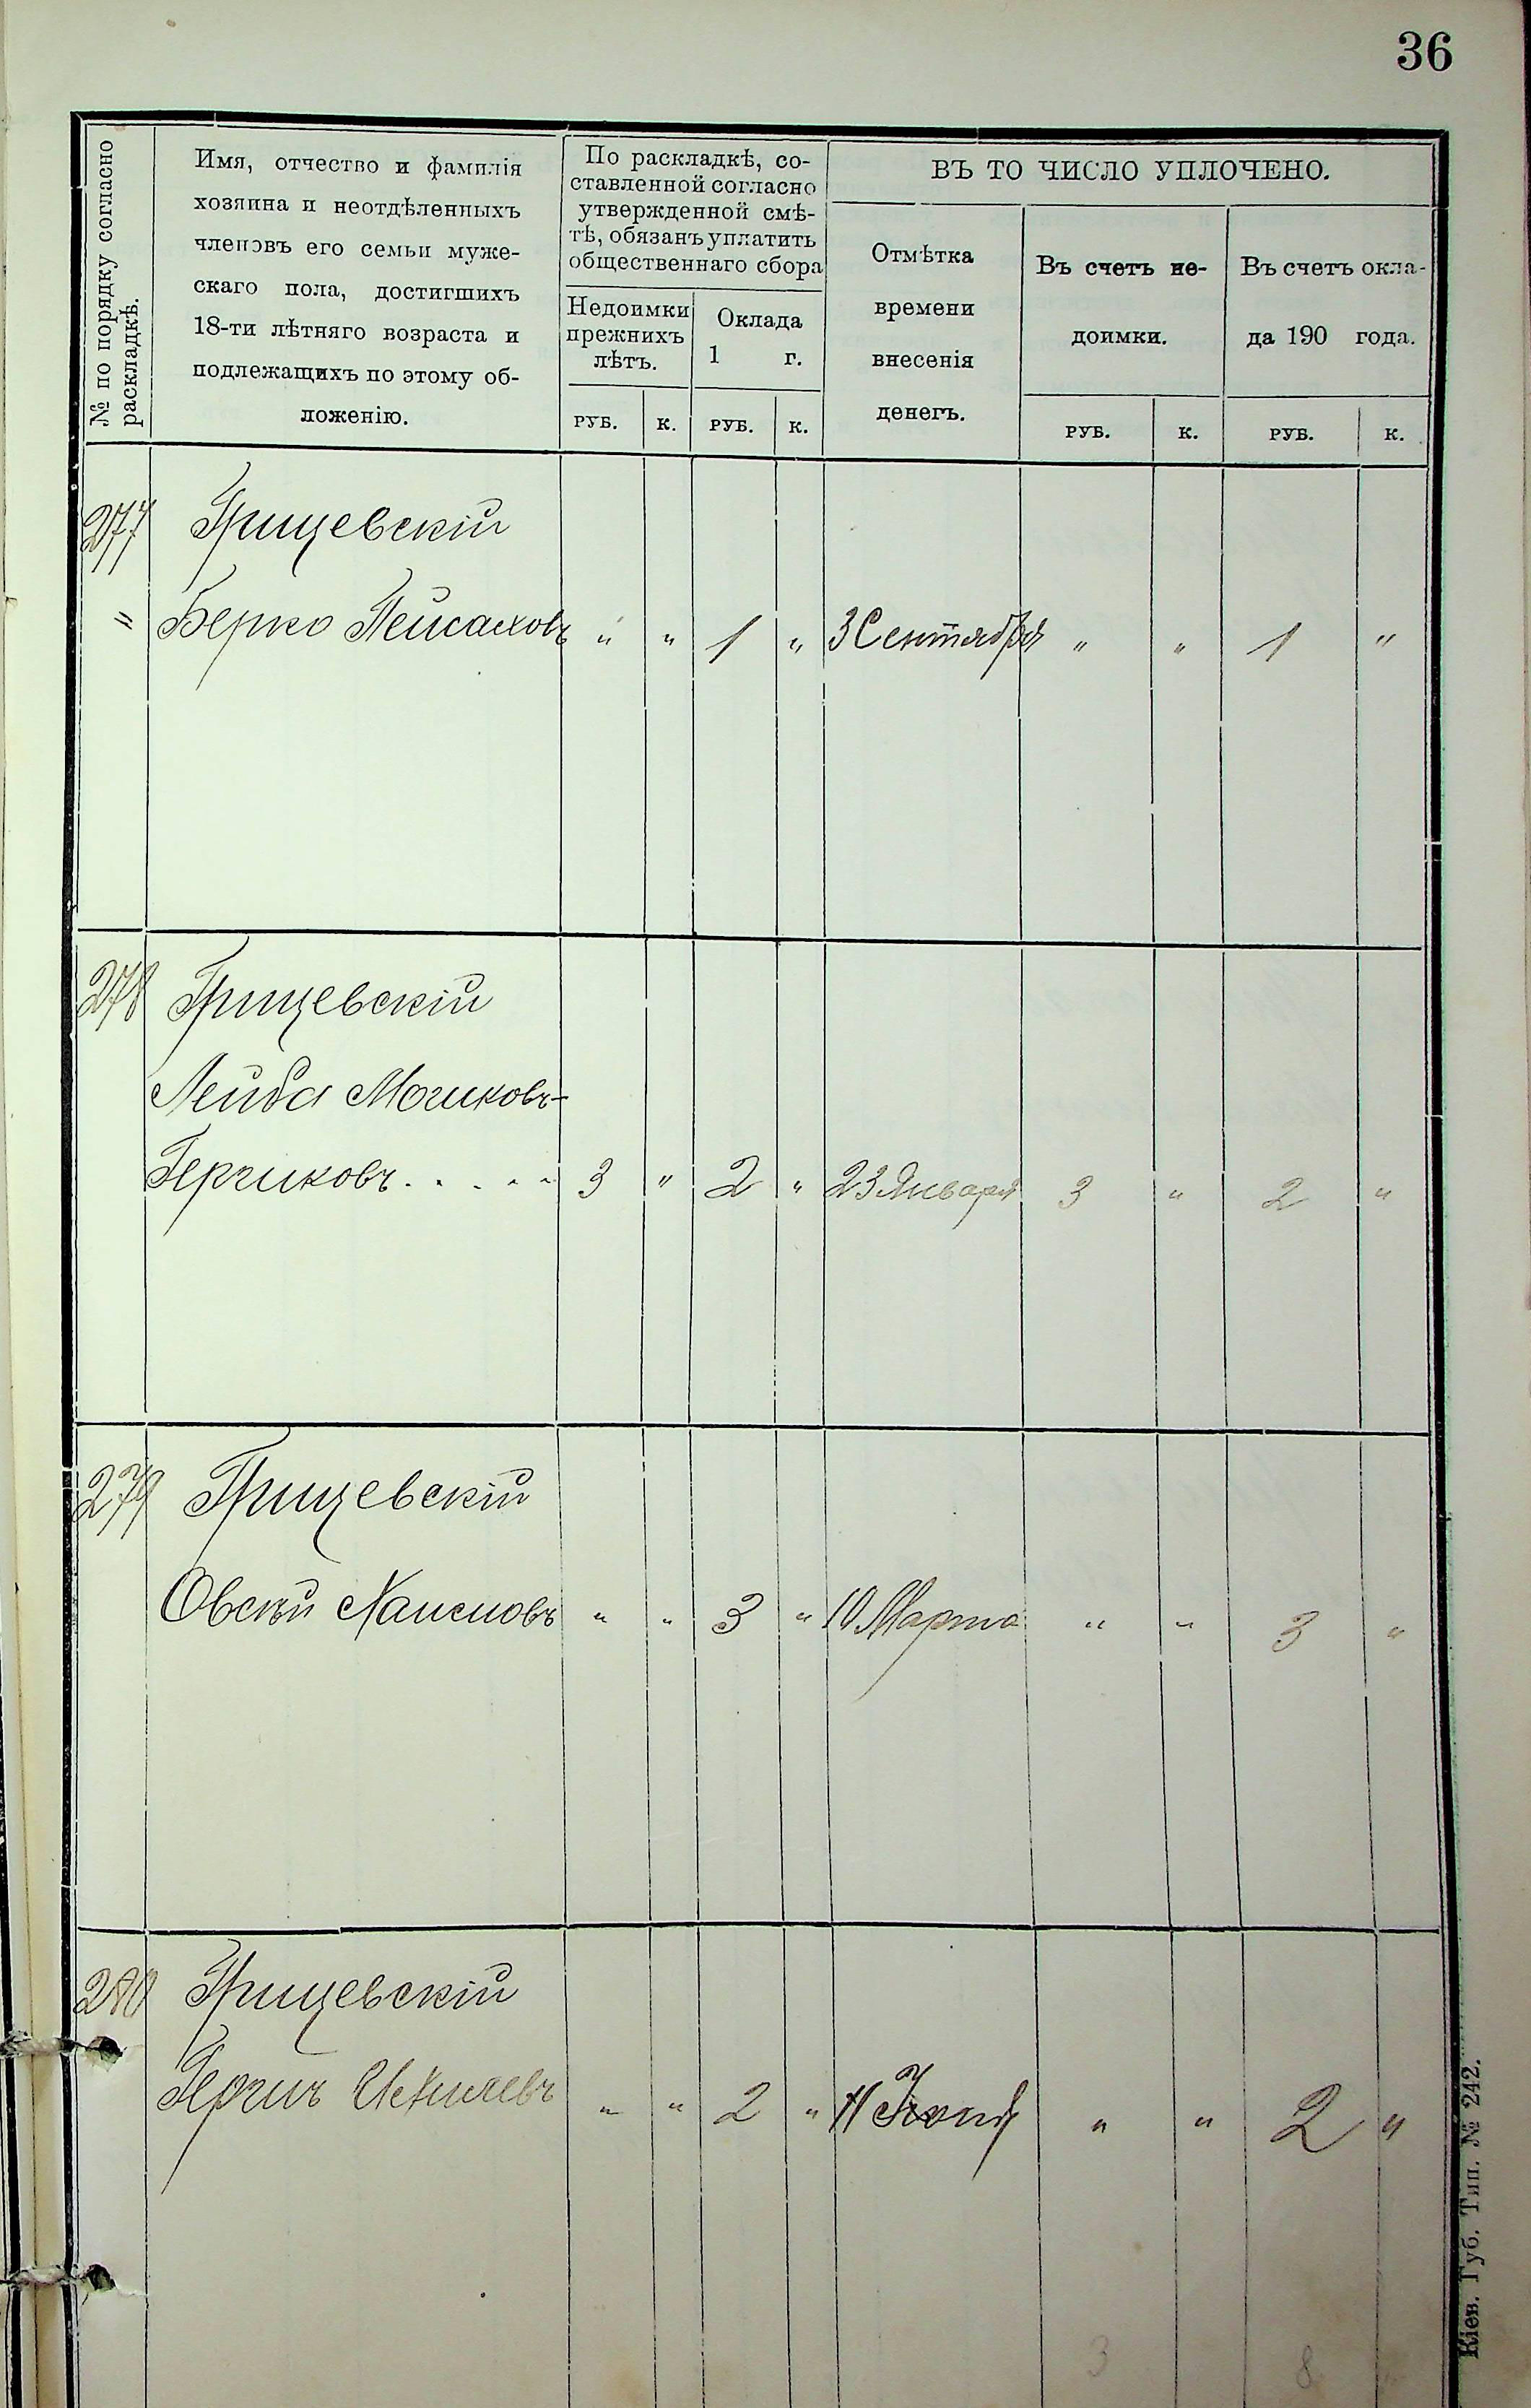 36
№ по порядку согласно
раскладкѣ.
Имя, отчество и фамилія
хозяина и неотдѣленныхъ
членовъ его семьи муже-
скаго пола, достигшихъ
18-ти лѣтняго возраста и
подлежащихъ по этому об-
ложенію.
По раскладкѣ, со-
ставленной согласно
утвержденной смѣ-
тѣ, обязанъ уплатить
общественнаго сбора
Недоимки
прежнихъ
лѣтъ.
Оклада
1 г.
РУБ. К. РУБ. К.
ВЪ ТО ЧИСЛО УПЛОЧЕНО.
Отмѣтка
времени
внесенія
денегъ.
Въ счетъ не-
доимки.
РУБ. К.
Въ счетъ окла-
да 190 года.
РУБ. К.
277 Грищевскій
" Берко Пейсаховъ " " 1 " 3 Сентября " " 1 "
278 Грищевскій
Лейба
3 " 2 " 23 Января 3 " 2 "
279 Грищевскій
Овсѣй " " 3 " 10 Марта " " 3 "
280 Грищевскій
" " 2 " 11 " " 2 "
3 8
Кіев. Губ. Тип. № 242.